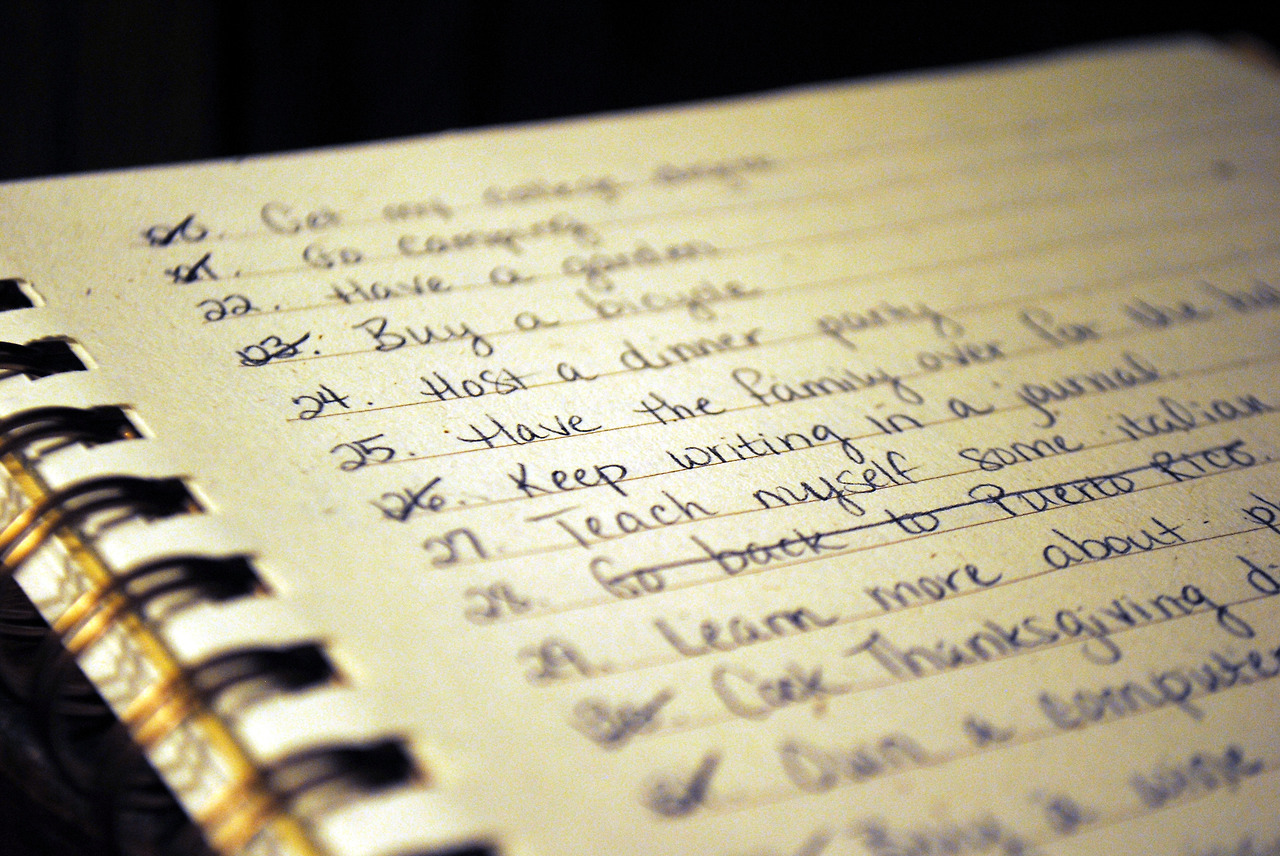 20. Get my college degree
21. Go camping
22. Have a garden
23. Buy a bicycle
24. Host a dinner party
25. Have the family over for the
26. Keep writing in a journal.
27. Teach myself some italian
28. Go back to Puerto Rico.
29. Learn more about
30. Cook Thanksgiving
Own a computer
Buy a wine